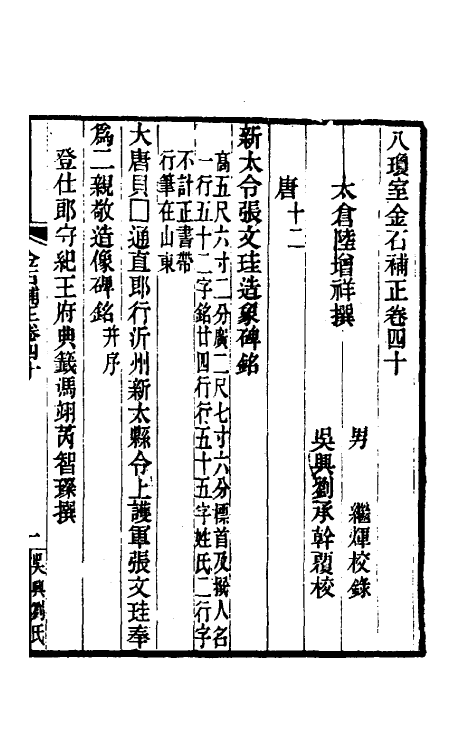 八瓊室金石補正卷四十
太倉陸增祥撰
男　繼煇校錄
吳興劉承幹覆校
唐十二
新太令張文珪造象碑銘
高五尺六寸二分廣二尺七寸六分標首及撰人名
一行五十二字銘廿四行行五十五字姓氏二行字
不計正書帶
行筆在山東
大唐貝□通直郎行沂州新太縣令上護軍張文珪奉
為二親敬造像碑銘并序
登仕郎守紀王府典籤馮翊芮智璨撰
金石補正卷四十
一
吳興劉氏